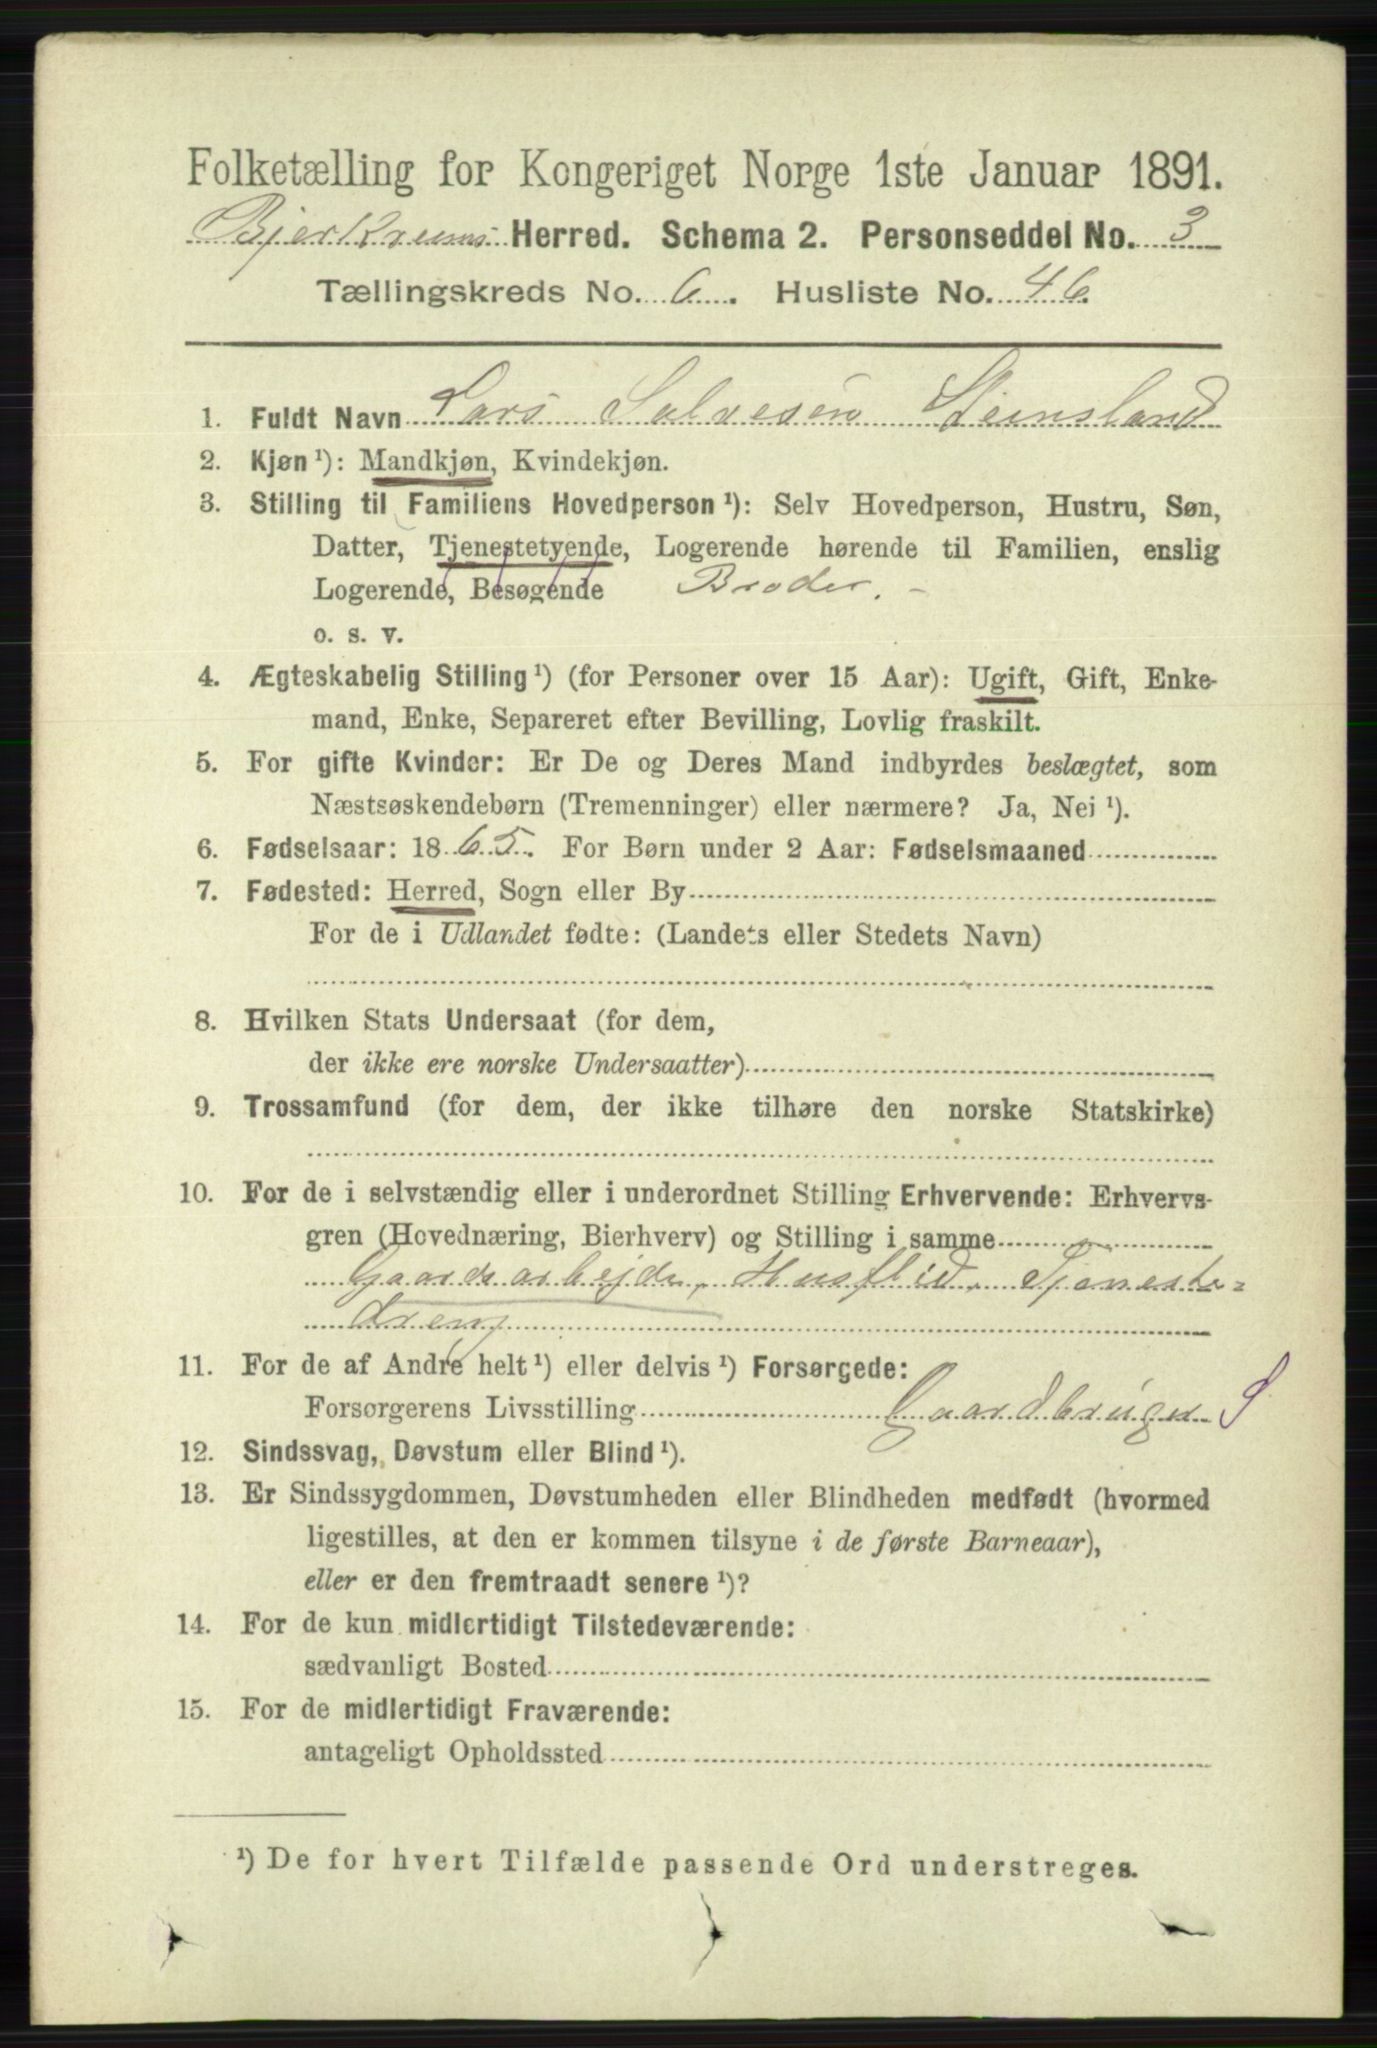 Folketælling for Kongeriget Norge 1ste Januar 1891.
Bjerkreims Herred. Schema 2. Personseddel No. 3
Tællingskreds No. 6. Husliste No. 46
1. Fuldt Navn Lars Salvesen Steinsland
2. Kjøn ¹): Mandkjøn, Kvindekjøn.
3. Stilling til Familiens Hovedperson ¹): Selv Hovedperson, Hustru, Søn,
Datter, Tjenestetyende, Logerende hørende til Familien, enslig
Logerende, Besøgende Broder. -
o. s. v.
4. Ægteskabelig Stilling ¹) (for Personer over 15 Aar): Ugift, Gift, Enke-
mand, Enke, Separeret efter Bevilling, Lovlig fraskilt.
5. For gifte Kvinder: Er De og Deres Mand indbyrdes beslægtet, som
Næstsøskendebørn (Tremenninger) eller nærmere? Ja, Nei ¹).
6. Fødselsaar: 1865. For Børn under 2 Aar: Fødselsmaaned
7. Fødested: Herred, Sogn eller By
For de i Udlandet fødte: (Landets eller Stedets Navn)
8. Hvilken Stats Undersaat (for dem,
der ikke ere norske Undersaatter)
9. Trossamfund (for dem, der ikke tilhøre den norske Statskirke)
10. For de i selvstændig eller i underordnet Stilling Erhvervende: Erhvervs-
gren (Hovednæring, Bierhverv) og Stilling i samme
Gaardsarbejde, Husflid, Tjeneste=
dreng
11. For de af Andre helt ¹) eller delvis ¹) Forsørgede:
Forsørgerens Livsstilling Gaardbruger S
12. Sindssvag, Døvstum eller Blind ¹).
13. Er Sindssygdommen, Døvstumheden eller Blindheden medfødt (hvormed
ligestilles, at den er kommen tilsyne i de første Barneaar),
eller er den fremtraadt senere ¹)?
14. For de kun midlertidigt Tilstedeværende:
sædvanligt Bosted
15. For de midlertidigt Fraværende:
antageligt Opholdssted
¹) De for hvert Tilfælde passende Ord understreges.